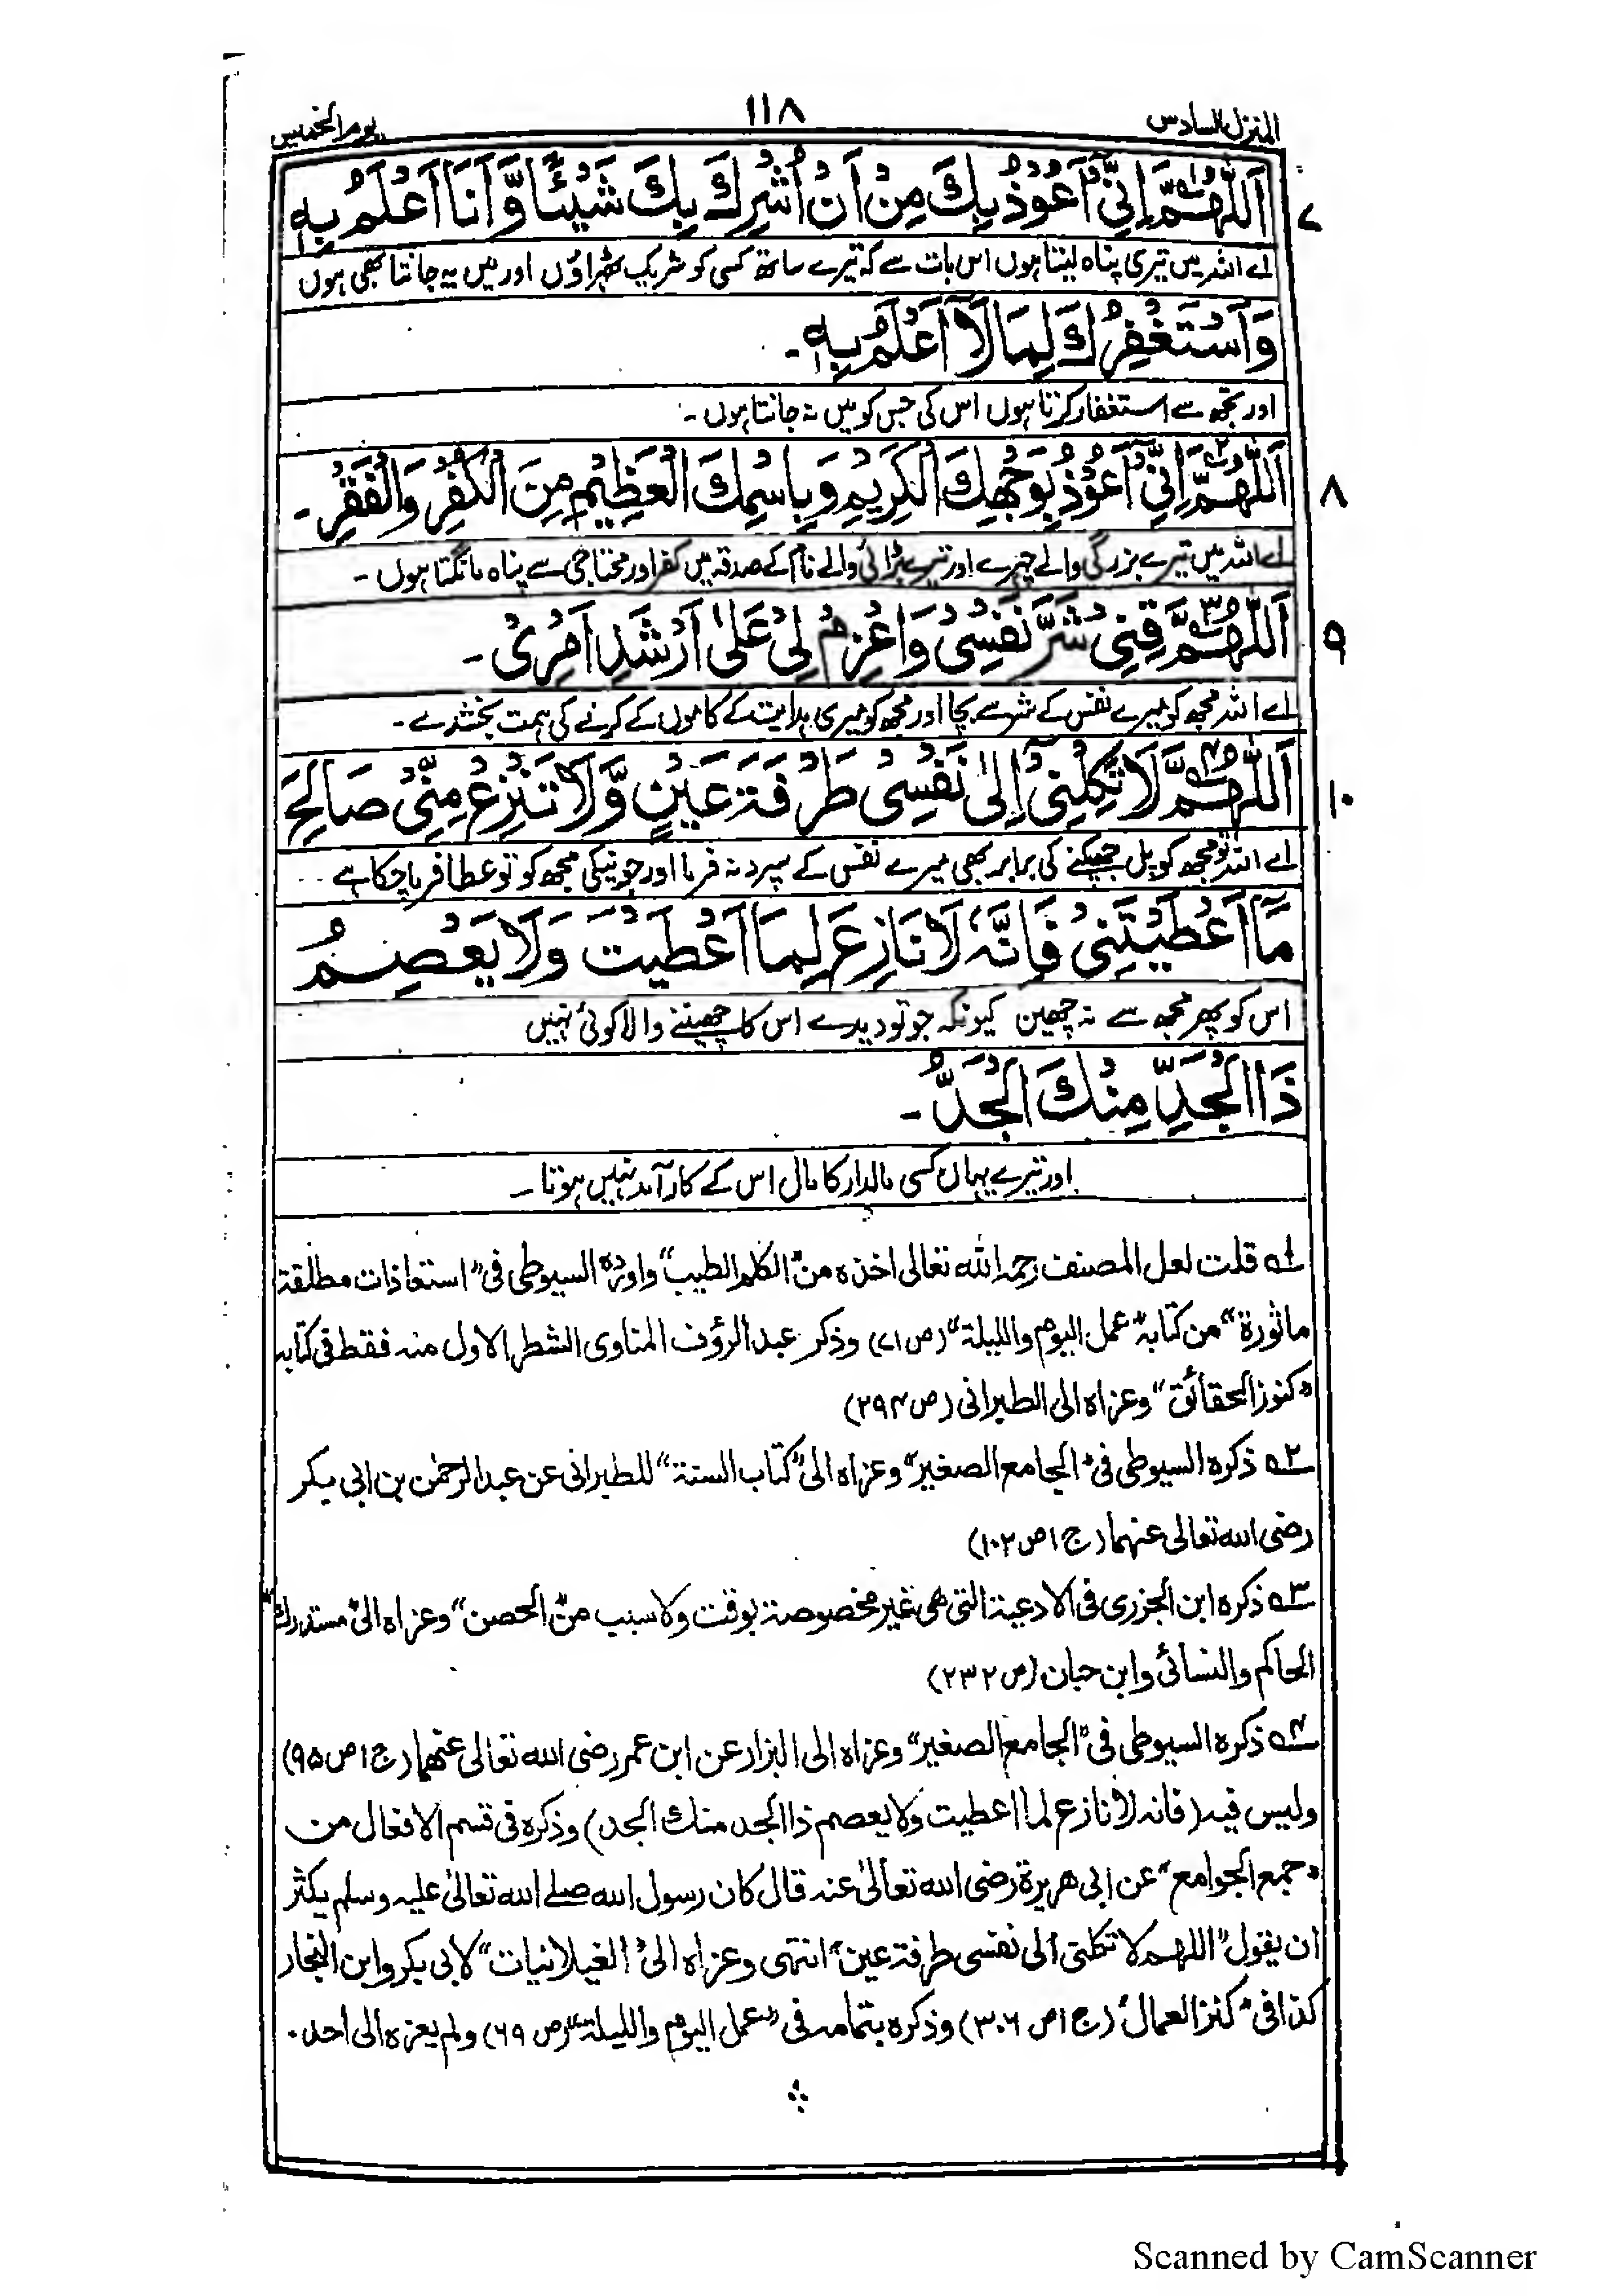 المنزل السادس
١١٨
يوم الخميس
٧ اَللّٰهُمَّ اِنِّىْٓ اَعُوْذُ بِكَ مِنْ اَنْ اُشْرِكَ بِكَ شَيْئًا وَّاَنَا اَعْلَمُ بِهٖ
اے اللہ میں تیری پناہ لیتا ہوں اس بات سے کہ تیرے ساتھ کسی کو شریک ٹھہراؤں اور میں یہ جانتا بھی ہوں
وَاَسْتَغْفِرُكَ لِمَا لَآ اَعْلَمُ بِهٖ۔
اور تجھ سے استغفار کرتا ہوں اس کی جس کو میں نہ جانتا ہوں۔
٨ اَللّٰهُمَّ اِنِّىْٓ اَعُوْذُ بِوَجْهِكَ الْكَرِيْمِ وَبِاسْمِكَ الْعَظِيْمِ مِنَ الْكُفْرِ وَالْفَقْرِ۔
اے اللہ میں تیرے بزرگی والے چہرے اور تیرے بڑائی والے نام کے صدقہ میں کفر اور محتاجی سے پناہ مانگتا ہوں۔
٩ اَللّٰهُمَّ قِنِىْ شَرَّ نَفْسِىْ وَاعْزِمْ لِىْ عَلٰى اَرْشَدِ اَمْرِىْ۔
اے اللہ مجھ کو میرے نفس کے شر سے بچا اور مجھ کو میری ہدایت کے کاموں کے کرنے کی ہمت بخشدے۔
١٠ اَللّٰهُمَّ لَا تَكِلْنِىْٓ اِلٰى نَفْسِىْ طَرْفَةَ عَيْنٍ وَّلَا تَنْزِعْ مِنِّىْ صَالِحَ
اے اللہ تو مجھ کو پل جھپکنے کی برابر بھی میرے نفس کے سپرد نہ فرما اور جو نیکی مجھ کو تو عطا فرما چکا ہے
مَآ اَعْطَيْتَنِىْ فَاِنَّهٗ لَا نَازِعَ لِمَا اَعْطَيْتَ وَلَا يَعْصِمُ
اس کو پھر مجھ سے نہ چھین کیونکہ جو تو دیدے اس کا چھیننے والا کوئی نہیں
ذَا الْجَدِّ مِنْكَ الْجَدُّ۔
اور تیرے یہاں کسی مالدار کا مال اس کے کارآمد نہیں ہوتا۔
١ـ قلت لعل المصنف رحمه الله تعالى اخذه من "الكلم الطيب" واورده السيوطى فى "استعاذات مطلقة
ماثورة" من كتابه "عمل اليوم والليلة" (ص ٧١) وذكر عبد الرؤف المناوى الشطر الاول منه فقط فى كتابه
"كنوز الحقائق" وعزاه الى الطبرانى (ص ٢٩٤)
٢ـ ذكره السيوطى فى "الجامع الصغير" وعزاه الى "كتاب السنة" للطبرانى عن عبد الرحمٰن بن ابى بكر
رضى الله تعالى عنهما (ج ١ ص ١٠٢)
٣ـ ذكره ابن الجزرى فى الادعية التى هى غير مخصوصة بوقت ولا سبب من "الحصن" وعزاه الى "مستدرك"
الحاكم والنسائى وابن حبان (ص ٢٣٢)
٤ـ ذكره السيوطى فى "الجامع الصغير" وعزاه الى البزار عن ابن عمر رضى الله تعالى عنهما (ج ١ ص ٩٥)
وليس فيه (فانه لا نازع لما اعطيت ولا يعصم ذا الجد منك الجد) وذكره فى قسم الافعال من
"جمع الجوامع" عن ابى هريرة رضى الله تعالىٰ عنه قال كان رسول الله صلے الله تعالىٰ عليه وسلم يكثر
ان يقول "اللهم لا تكلنى الى نفسى طرفة عين" انتهى وعزاه الى "الغيلانيات" لابى بكر وابن النجار
كذا فى "كنز العمال" (ج ١ ص ٣٠٦) وذكره بتمامه فى "عمل اليوم والليلة" (ص ٦٩) ولم يعزه الى احد۔
Scanned by CamScanner